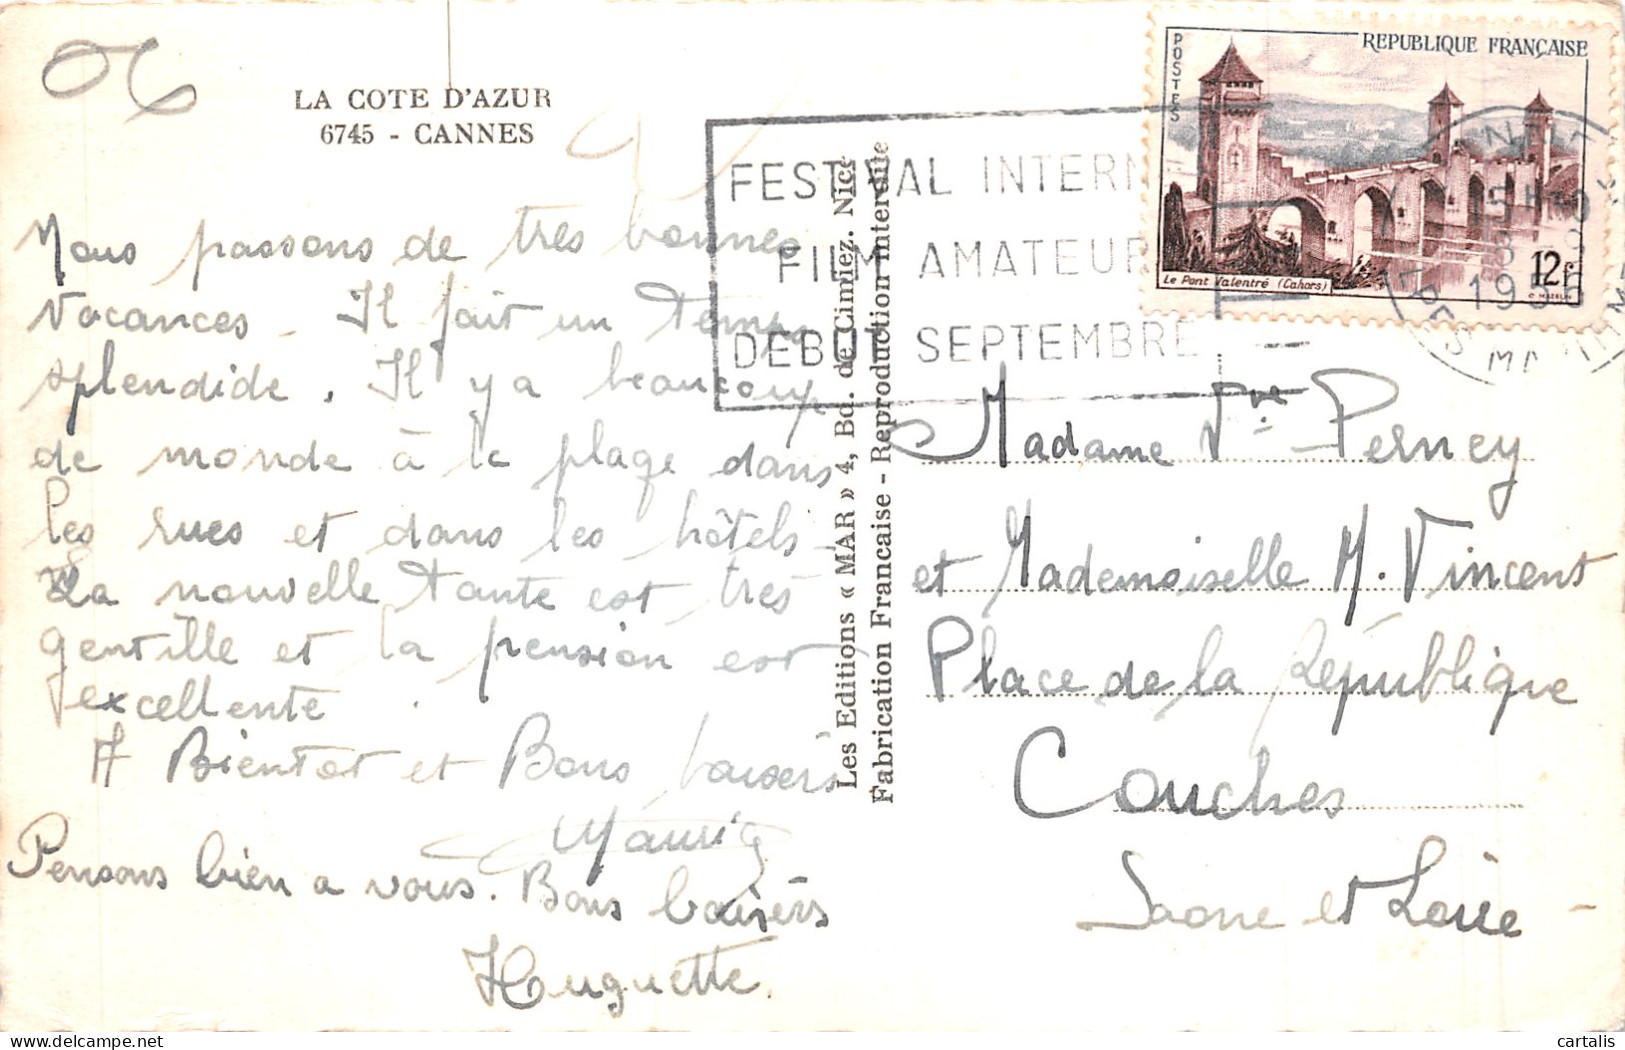 06
LA COTE D'AZUR
6745 - CANNES
Nous passons de très bonnes
vacances. Il fait un temps
splendide. Il y a beaucoup
de monde à la plage dans
les rues et dans les hôtels.
La nouvelle tante est très
gentille et la pension est
excellente.
A Bientot et Bons baisers
Pensons bien a vous. Bons baisers
Huguette.
Les Editions « MAR » 4, Bd. de Cimiez. Nice
Fabrication Francaise - Reproduction interdite
FESTIVAL INTERN
FILM AMATEUR
DEBUT SEPTEMBRE
POSTES
REPUBLIQUE FRANÇAISE
Le Pont Valentré (Cahors)
12f
Madame Vve Perney
et Mademoiselle M. Vincent
Place de la République
Couches
Saone et Loire
cartalis